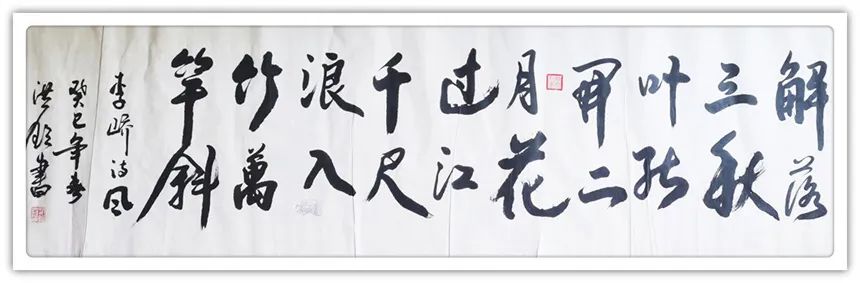 解落
三秋
叶能
开二
月花
过江
千尺
浪入
竹萬
竿斜
李峤诗风
癸巳年春
洪钧書